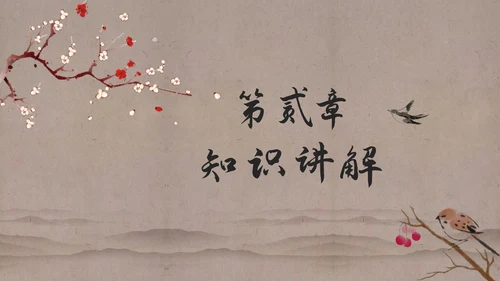 第贰章
知识讲解